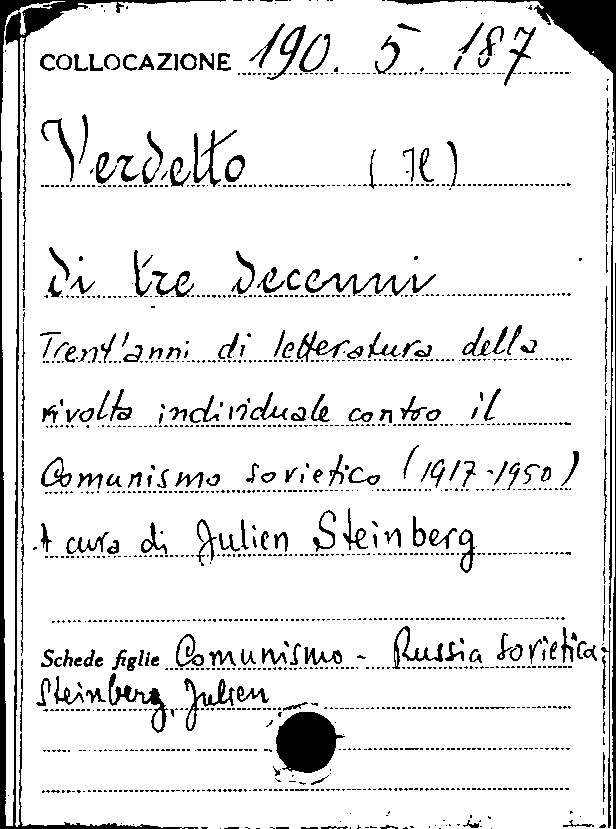 COLLOCAZIONE 190. 5. 187
Verdetto (Il)
di tre decenni
Trent'anni di letteratura della
rivolta individuale contro il
Comunismo sovietico (1917-1950)
A cura di Julien Steinberg
Schede figlie Comunismo - Russia Sovietica-
Steinberg, Julien